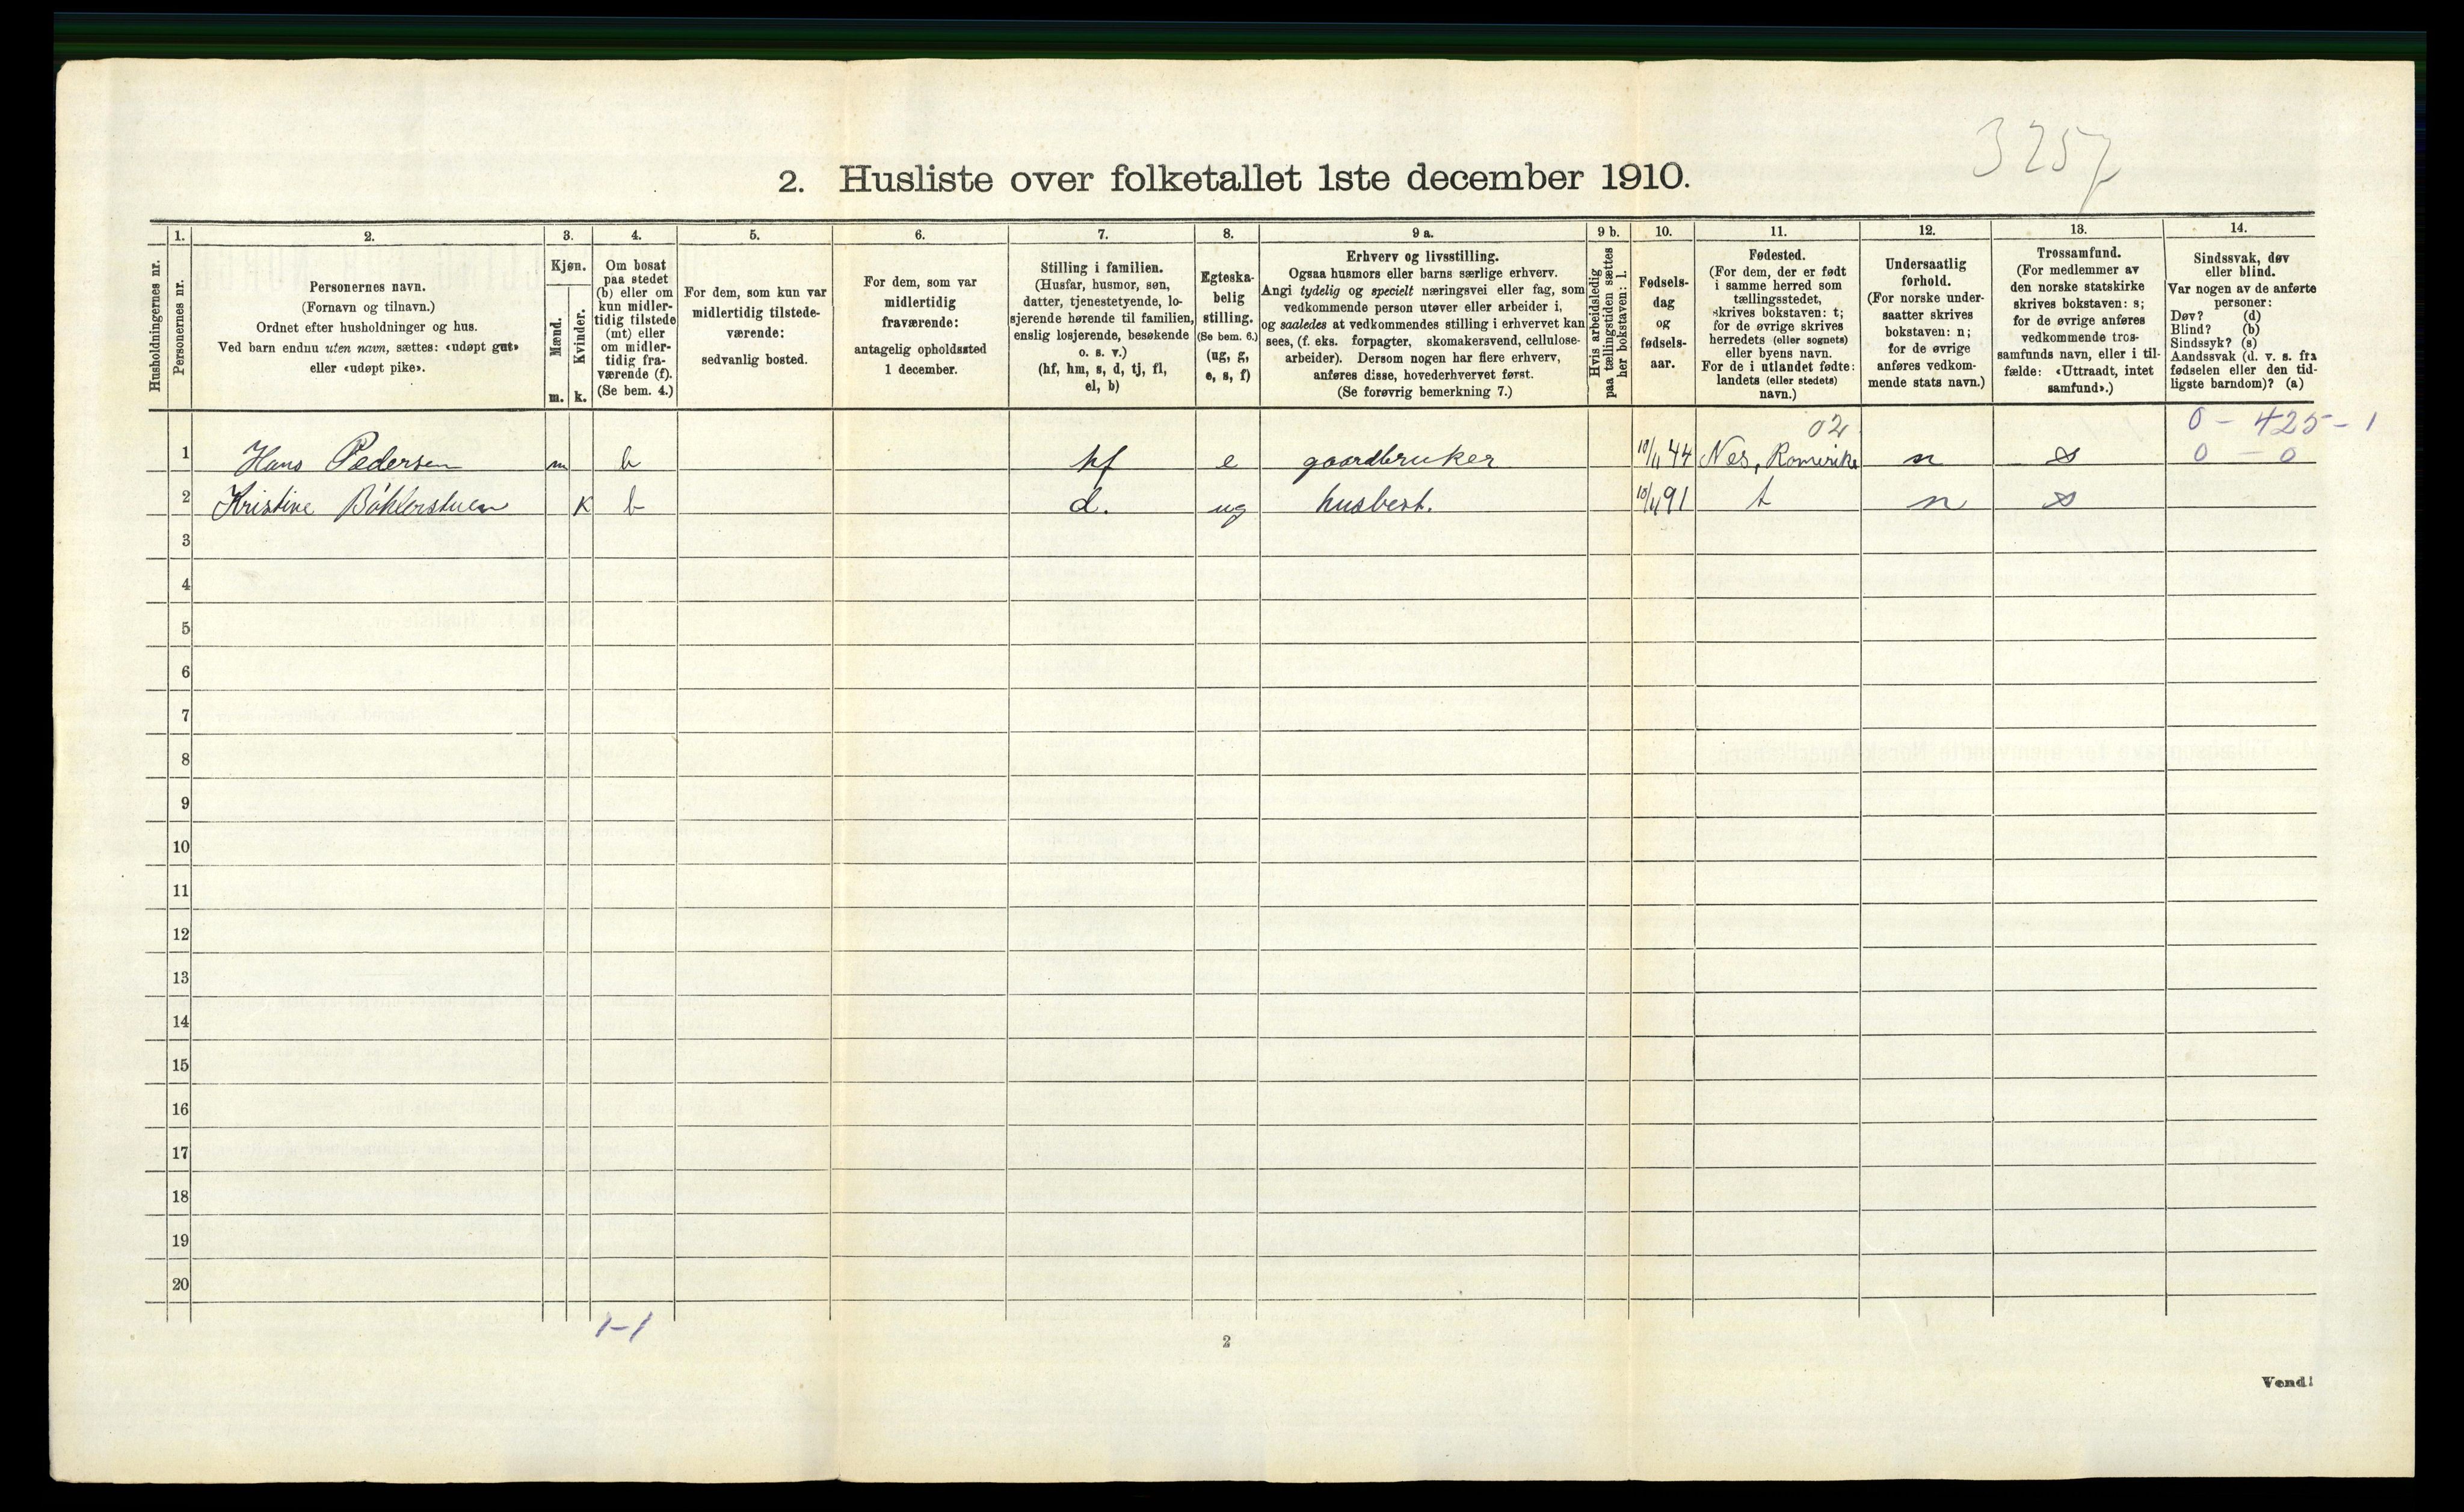 3257
2. Husliste over folketallet 1ste december 1910.
Husholdningernes nr.
1.
Personernes nr.
2.
Personernes navn.
(Fornavn og tilnavn.)
Ordnet efter husholdninger og hus.
Ved barn endnu uten navn, sættes: «udøpt gut»
eller «udøpt pike».
3.
Kjøn.
Mænd.
Kvinder.
m. k.
4.
Om bosat
paa stedet
(b) eller om
kun midler-
tidig tilstede
(mt) eller
om midler-
tidig fra-
værende (f).
(Se bem. 4.)
5.
For dem, som kun var
midlertidig tilstede-
værende:
sedvanlig bosted.
6.
For dem, som var
midlertidig
fraværende:
antagelig opholdssted
1 december.
7.
Stilling i familien.
(Husfar, husmor, søn,
datter, tjenestetyende, lo-
sjerende hørende til familien,
enslig losjerende, besøkende
o. s. v.)
(hf, hm, s, d, tj, fl,
el, b)
8.
Egteska-
belig
stilling.
(Se bem. 6.)
(ug, g,
e, s, f)
9 a.
Erhverv og livsstilling.
Ogsaa husmors eller barns særlige erhverv.
Angi tydelig og specielt næringsvei eller fag, som
vedkommende person utøver eller arbeider i,
og saaledes at vedkommendes stilling i erhvervet kan
sees, (f. eks. forpagter, skomakersvend, cellulose-
arbeider). Dersom nogen har flere erhverv,
anføres disse, hovederhvervet først.
(Se forøvrig bemerkning 7.)
9 b.
Hvis arbeidsledig
paa tællingstiden sættes
her bokstaven: l.
10.
Fødsels-
dag
og
fødsels-
aar.
11.
Fødested.
(For dem, der er født
i samme herred som
tællingsstedet,
skrives bokstaven: t;
for de øvrige skrives
herredets (eller sognets)
eller byens navn.
For de i utlandet fødte:
landets (eller stedets)
navn.)
12.
Undersaatlig
forhold.
(For norske under-
saatter skrives
bokstaven: n;
for de øvrige
anføres vedkom-
mende stats navn.)
13.
Trossamfund.
(For medlemmer av
den norske statskirke
skrives bokstaven: s;
for de øvrige anføres
vedkommende tros-
samfunds navn, eller i til-
fælde: «Uttraadt, intet
samfund».)
14.
Sindssvak, døv
eller blind.
Var nogen av de anførte
personer:
Døv? (d)
Blind? (b)
Sindssyk? (s)
Aandssvak (d. v. s. fra
fødselen eller den tid-
ligste barndom)? (a)
02 0 - 425 - 1
1 Hans Pedersen m b hf e gaardbruker 10/11 44 Nes, Romerike n s 0 - 0
2 Kristine Böhlerstuen K b d. ug husbest. 10/11 91 t n s
3
4
5
6
7
8
9
10
11
12
13
14
15
16
17
18
19
20
1-1
2
Vend!